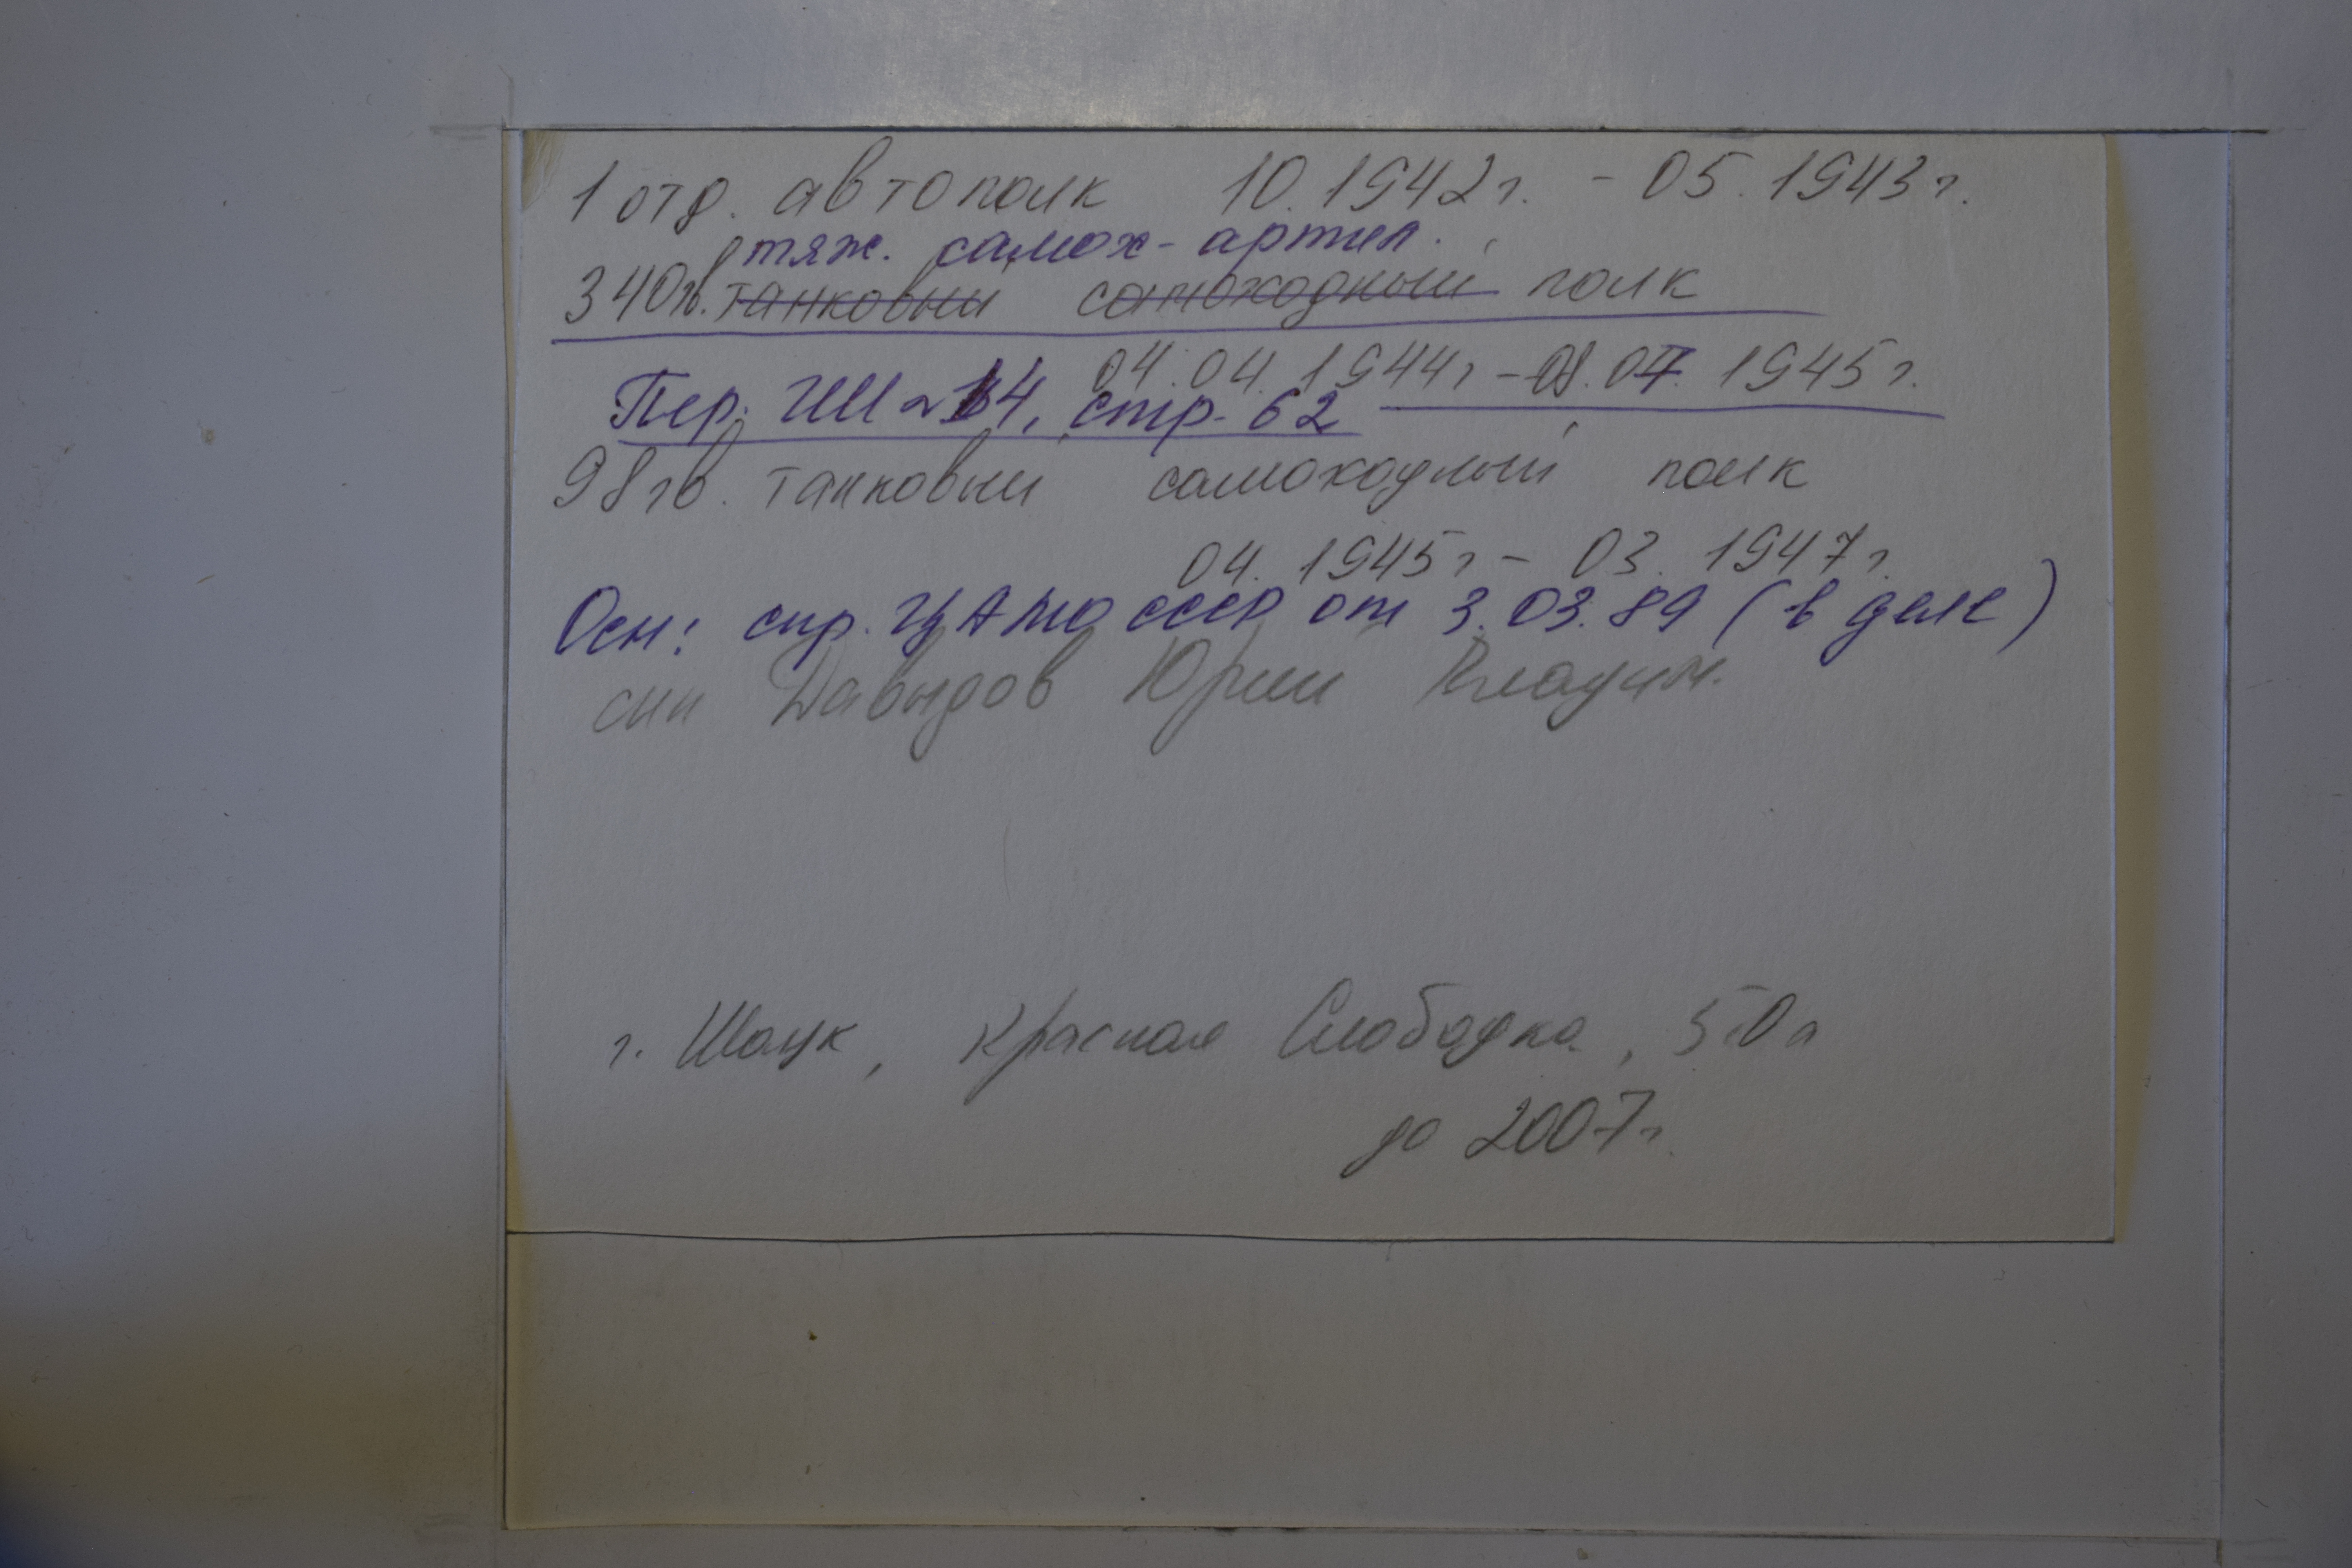 1 отд. автополк 10.1942г. - 05.1943г.
тяж. самох- артил.
340гв. танковый самоходный полк
04.04.1944г - 08.04.1945г.
Пер. ГШ № 14, стр. 62
98гв. танковый самоходный полк
04.1945г - 03.1947г.
Осн: спр. ЦАМО СССР от 3.03.89 (в деле)
сын Давыдов Юрий Владим.
г. Шацк, Красная Слободка, 50а
до 2007г.